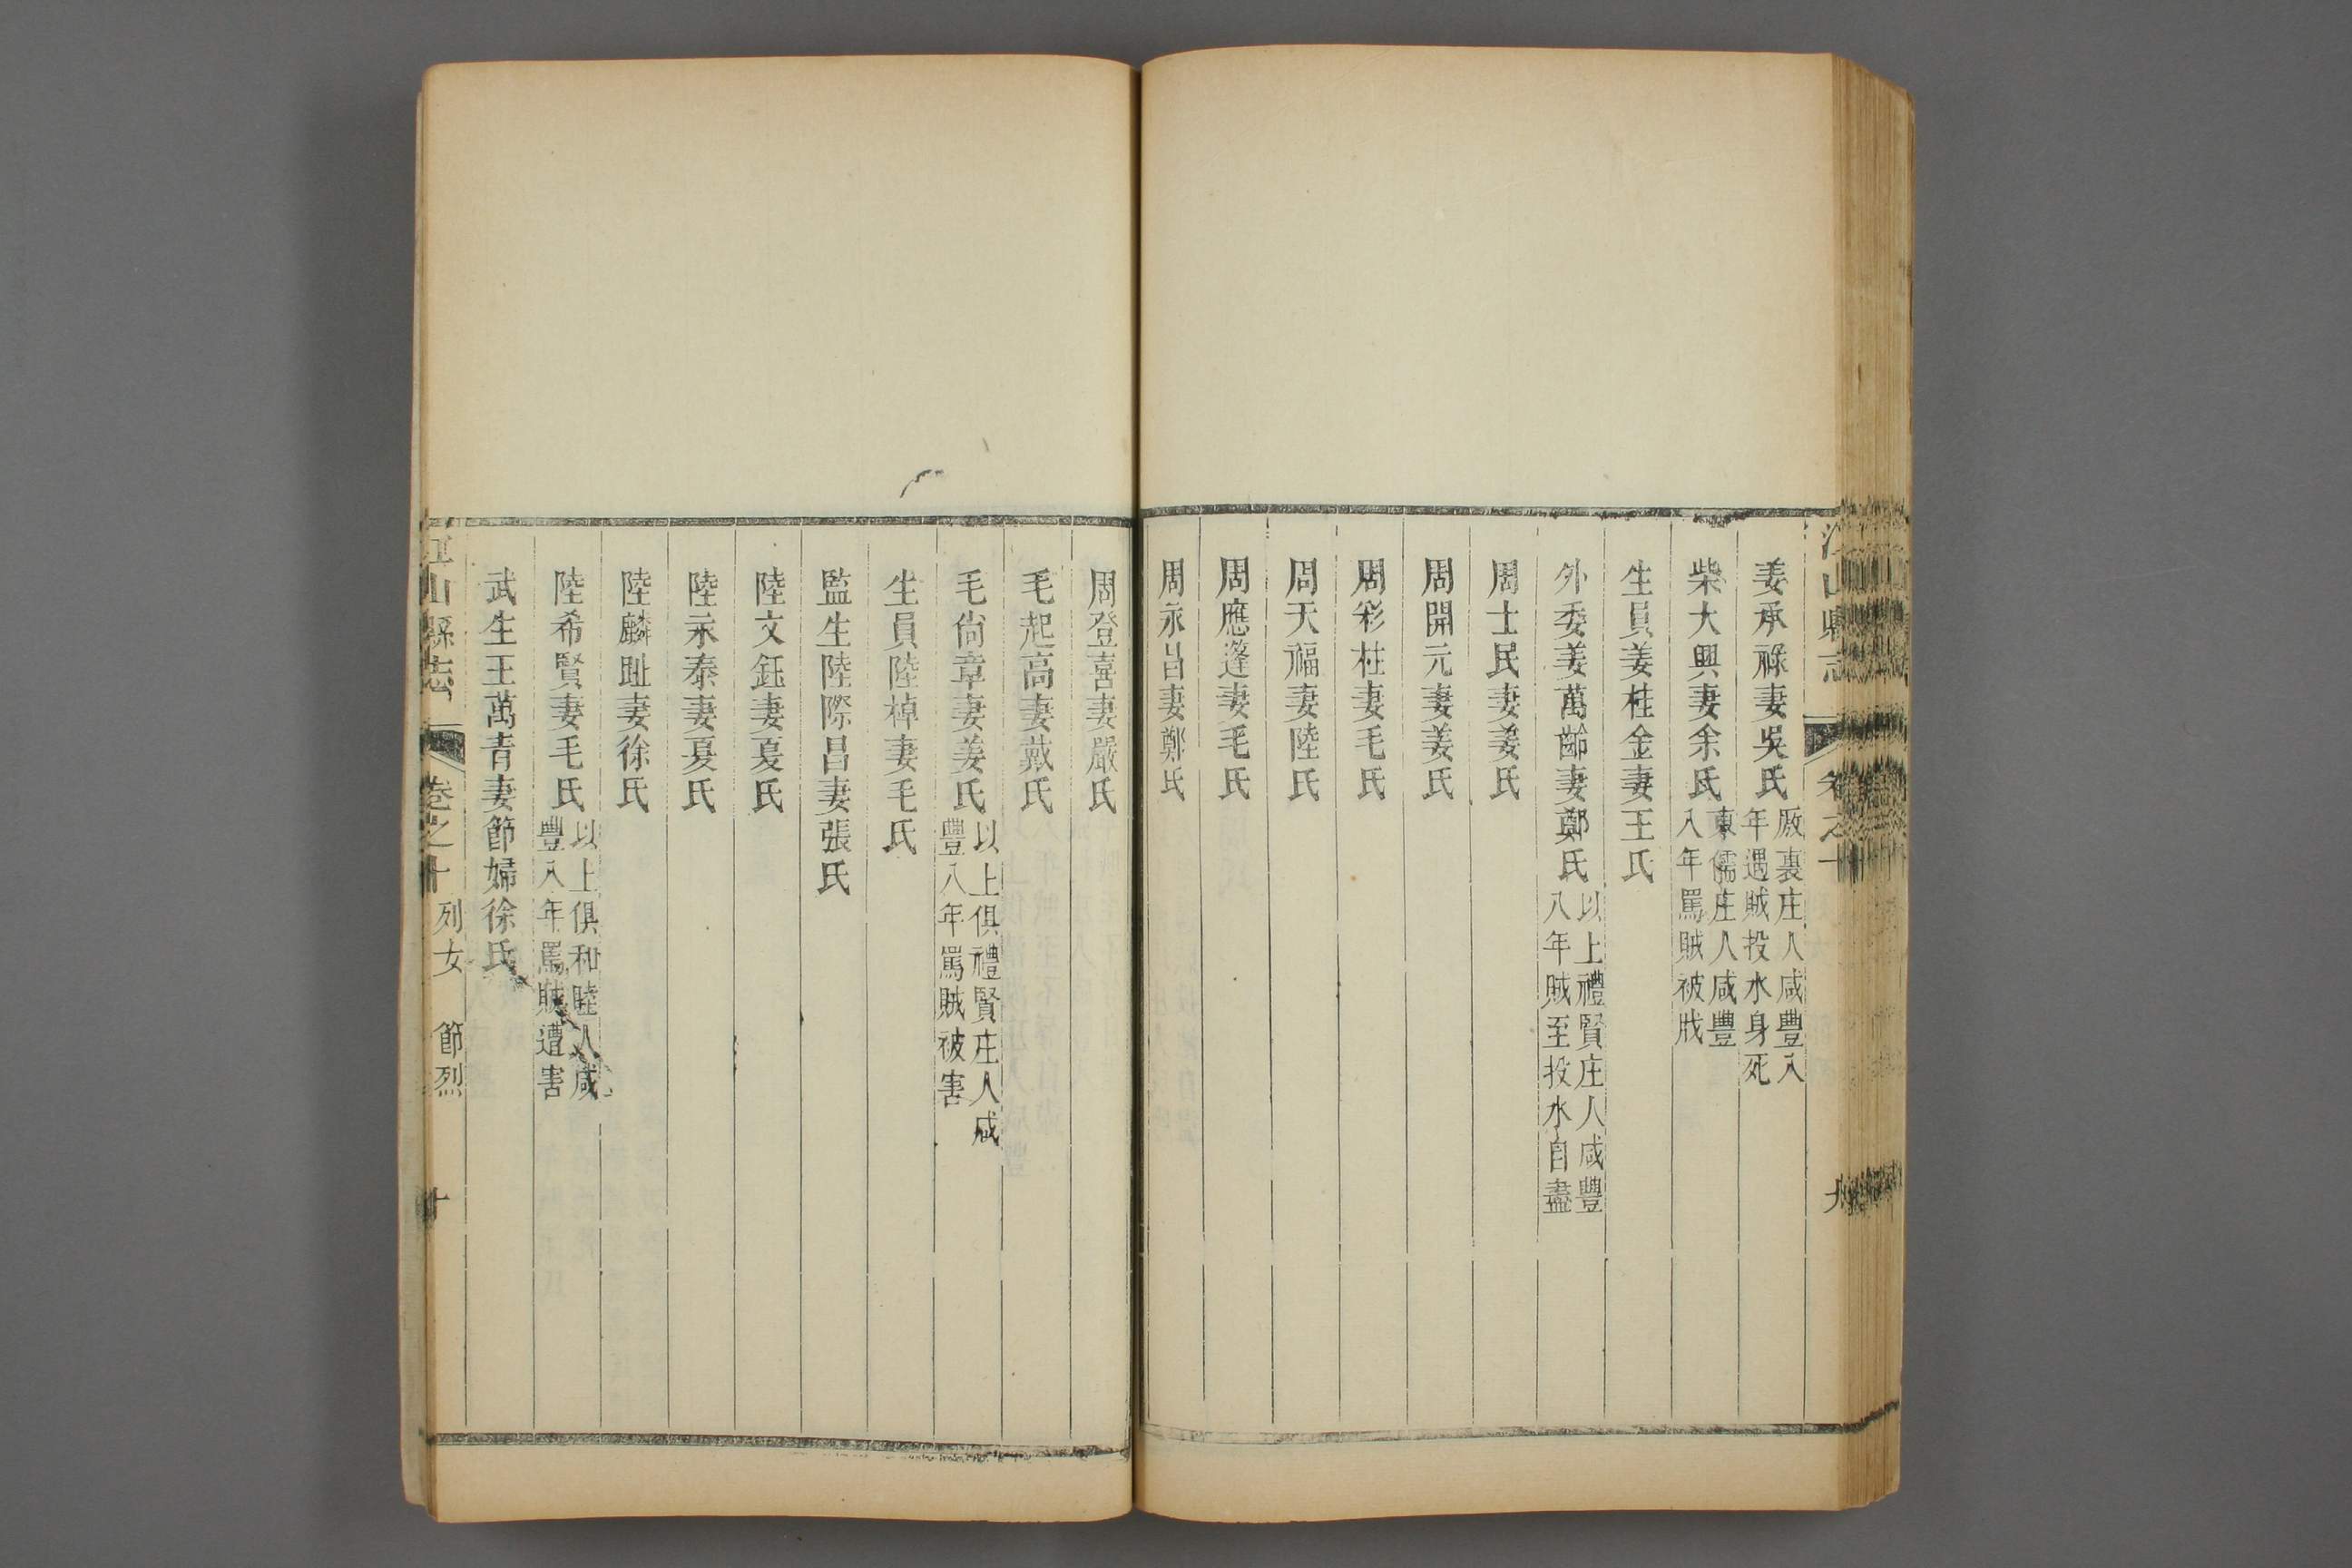 姜承祿妻吳氏厫裏庄人咸豐八年遇賊投水身死
柴大興妻余氏東儒庄人咸豐八年罵賊被戕
生員姜桂金妻王氏
外委姜萬齡妻鄭氏以上禮賢庄人咸豐八年賊至投水自盡
周士民妻姜氏
周開元妻姜氏
周彩柱妻毛氏
周天福妻陸氏
周應逢妻毛氏
周永昌妻鄭氏
周登喜妻嚴氏
毛起高妻戴氏
毛尙章妻姜氏以上俱禮賢庄人咸豐八年罵賊被害
生員陸棹妻毛氏
監生陸際昌妻張氏
陸文鈺妻夏氏
陸永泰妻夏氏
陸麟趾妻徐氏
陸希賢妻毛氏以上俱和睦人咸豐八年罵賊遭害
武生王萬青妻節婦徐氏
江山縣志 卷之十 列女 節烈 十